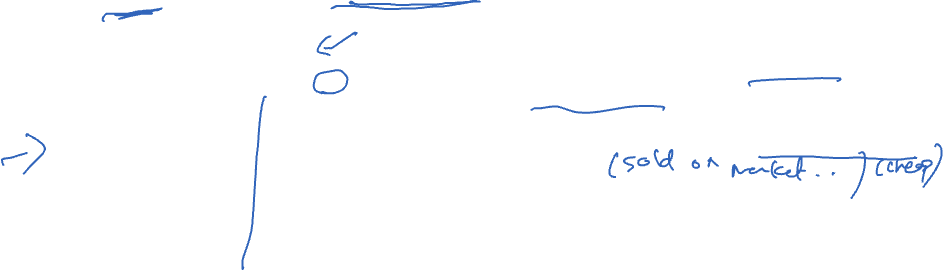 (sold on market..) (cheap)